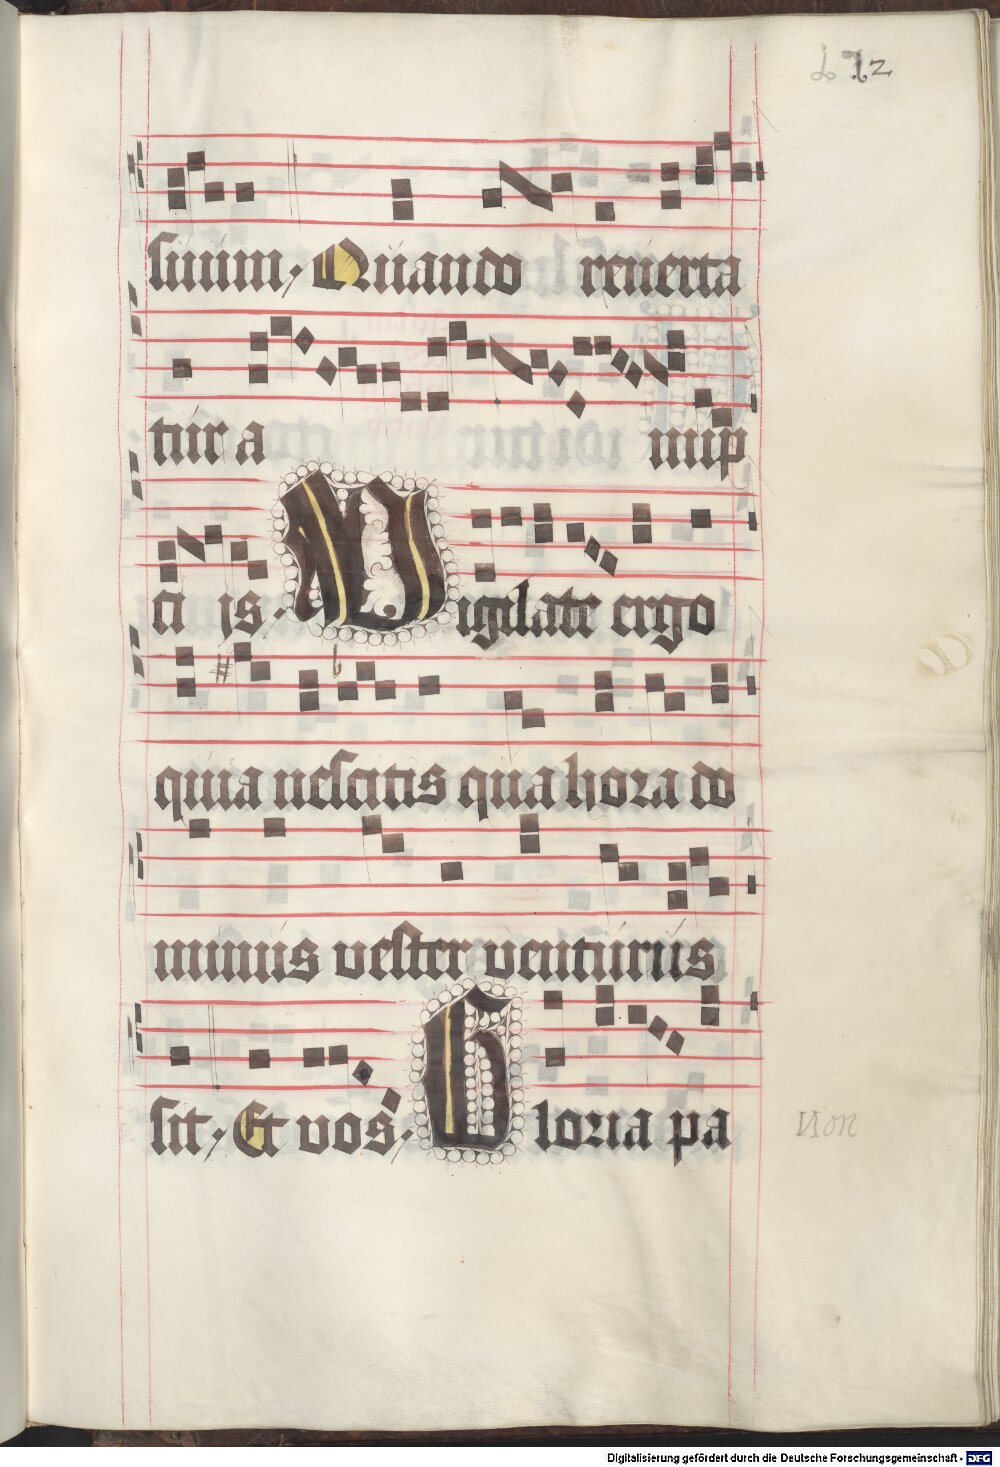 172
suum, Quando reuerta
tur a nup
cijs. Vigilate ergo
quia nescitis qua hora do
minus vester venturus
sit, Et vos. Gloria pa
Non
Digitalisierung gefördert durch die Deutsche Forschungsgemeinschaft - DFG